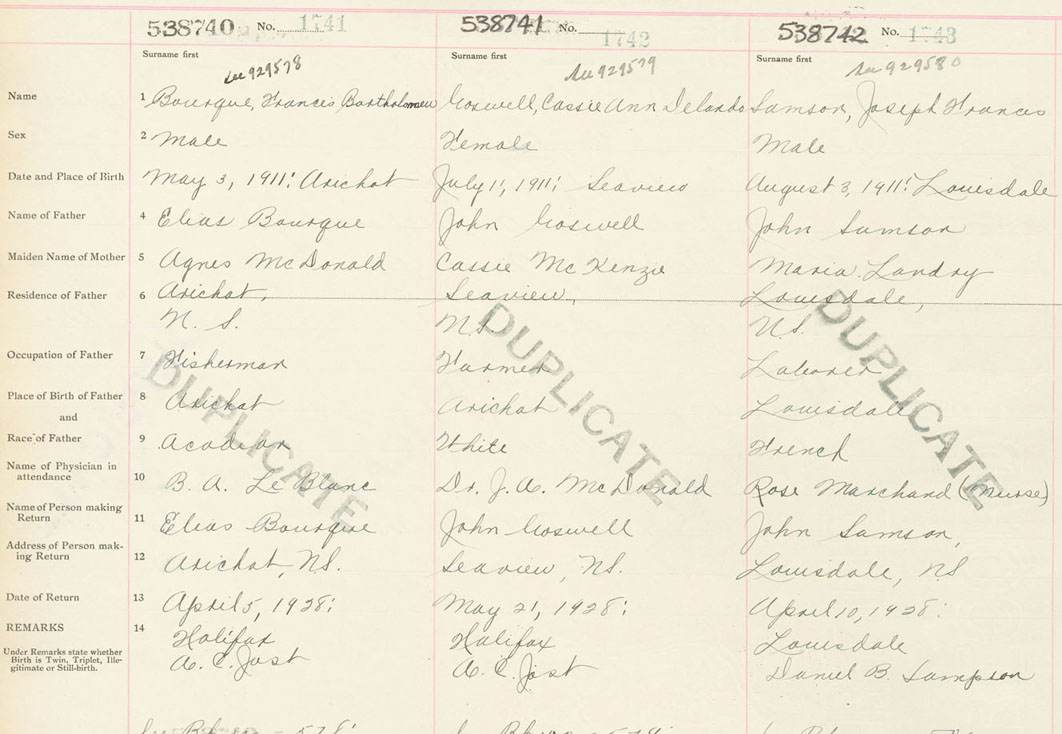 538740 No. 1741
Surname first
See 929578
538741 No. 1742
Surname first
See 929579
538742 No. 1743
Surname first
See 929580
Name 1 Bourque, Francis Bartholomew Goswell, Cassie Ann Delando Samson, Joseph Francis
Sex 2 Male Female Male
Date and Place of Birth May 3, 1911: Arichat July 1, 1911: Seaview August 3, 1911: Louisdale
Name of Father 4 Elias Bourque John Goswell John Samson
Maiden Name of Mother 5 Agnes McDonald Cassie McKenzie Maria Landry
Residence of Father 6 Arichat, Seaview, Louisdale,
N. S. NS N.S.
Occupation of Father 7 Fisherman Farmer Laborer
Place of Birth of Father 8 Arichat Arichat Louisdale
and
Race of Father 9 Acadian White French
Name of Physician in
attendance 10 B. A. Le Blanc Dr. J. A. McDonald Rose Marchand (Nurse)
Name of Person making
Return 11 Elias Bourque John Goswell John Samson,
Address of Person mak-
ing Return 12 Arichat, NS. Seaview, NS. Louisdale, NS
Date of Return 13 April 5, 1928: May 21, 1928: April 10, 1928:
REMARKS 14 Halifax Halifax Louisdale
Under Remarks state whether
Birth is Twin, Triplet, Ille-
gitimate or Still-birth.
A. C. Jost A. C. Jost Daniel B. Sampson
DUPLICATE
DUPLICATE
DUPLICATE